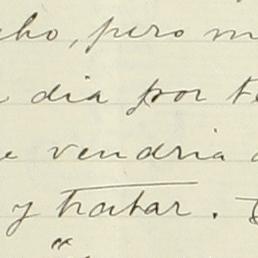 cho, pero m
dia por te
e vendria
y tratar.